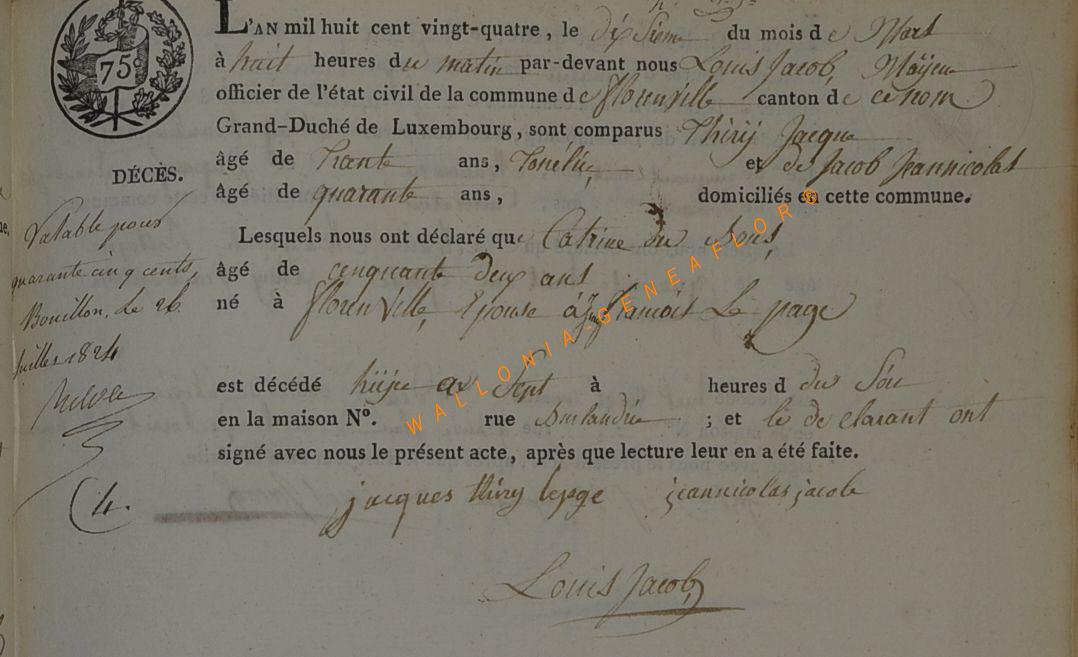 75c
L'AN mil huit cent vingt-quatre, le dixsieme du mois de Mart
à huit heures du matin par-devant nous Louis Jacob, Maÿeur
officier de l'état civil de la commune de florenville canton de ce nom
Grand-Duché de Luxembourg, sont comparus Thirÿ Jacque
âgé de trente ans, et de Jacob Jeannicolas
âgé de quarante ans, domiciliés en cette commune.
DÉCÈS.
Valable pour
quarante cinq cents,
Bouillon, le 26
Juillet 1824
Lesquels nous ont déclaré que Catrine du
âgé de cenquante deux ans
né à florenville, Epouse à francois Le page
est décédé hiÿer ax Sept à heures d du Soir
en la maison No. rue ; et le declarant ont
signé avec nous le présent acte, après que lecture leur en a été faite.
4.
jacques thiry lepge jeannicolas jacob
Louis Jacob
WALLONIA-GENEAFLOR©